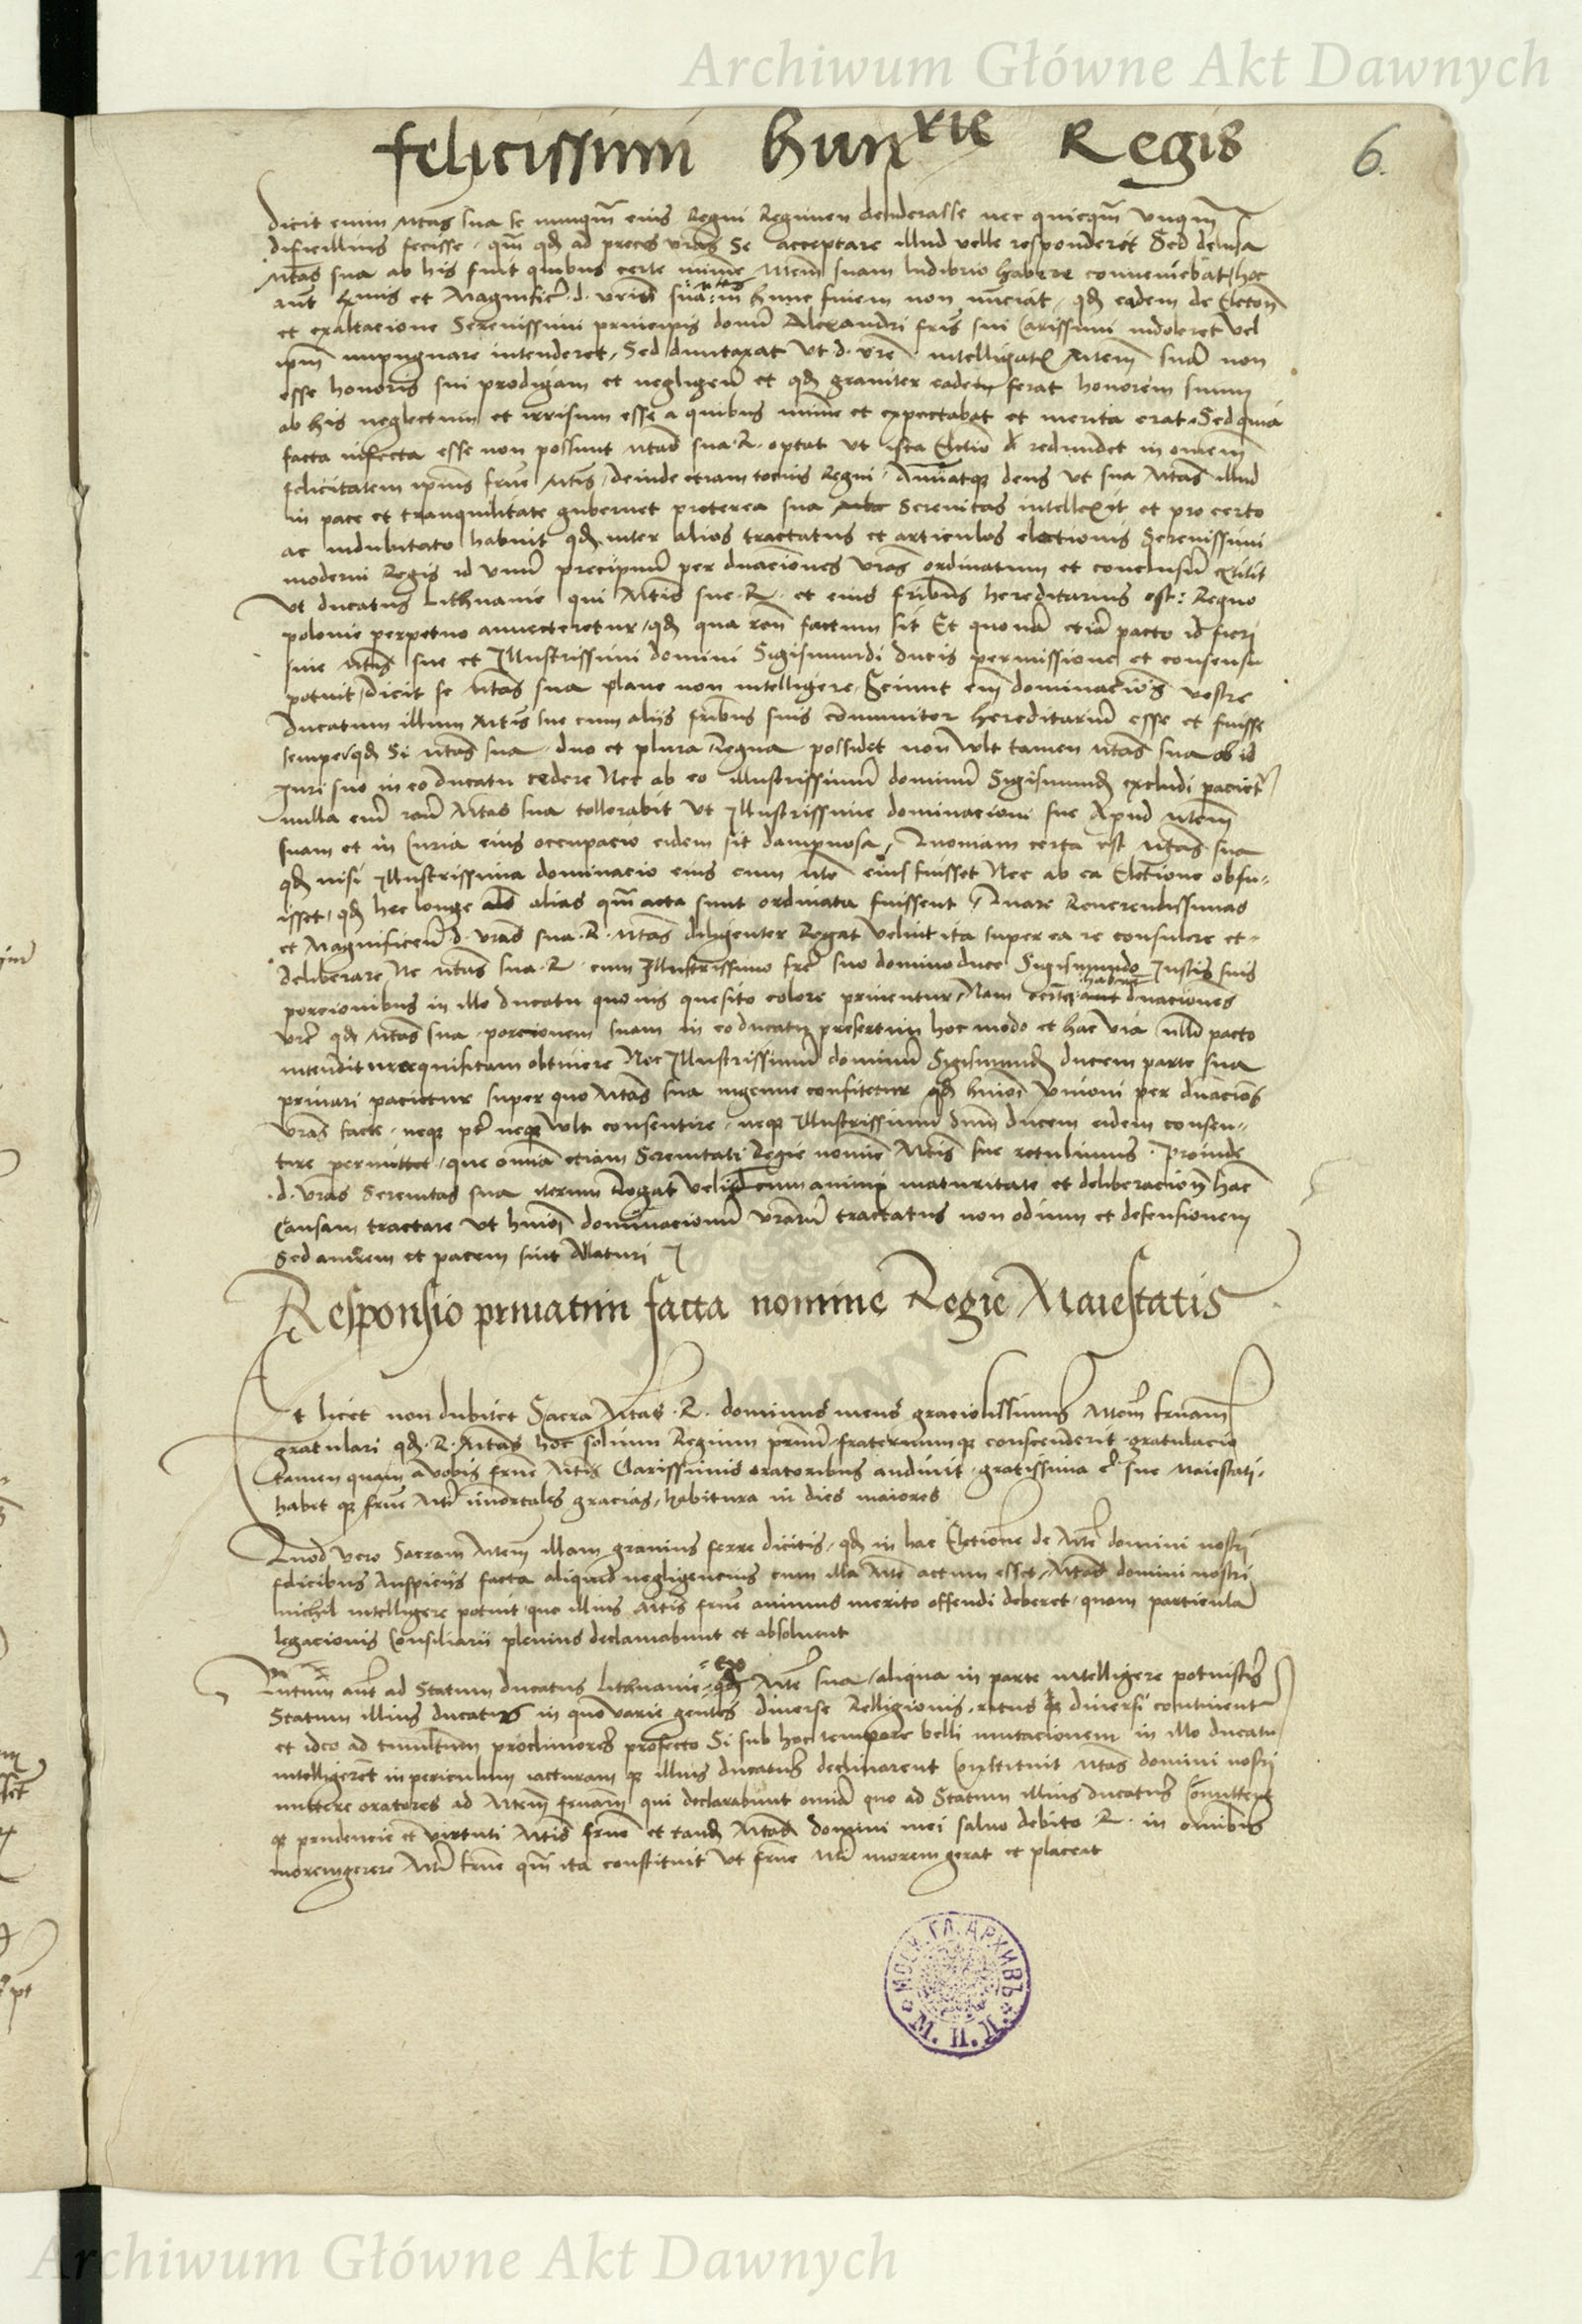 Archiwum Główne Akt Dawnych
felicissimi hun xie Regis
6.
dicit enim Mtas sua se nunqm eius Regni Regimen desiderasse nec quicqm unqm
dificillius fecisse, qm qd ad preces vras se acceptare illud velle responderet Sed delusa
Mtas sua ab his fuit quibus certe minime Mtem suam ludibrio habere conveniebat, hoc
aut et Magnific. d. in hunc finem non nuciat, qd eadem de Electon
et exaltacione Serenissimi principis domi Alexandri fris sui Carissimi indoleret vel
ipm impugnare intenderet, Sed duntaxat ut d. vre intelligat Mtem sua non
esse honoris sui prodigam et negligen et qd graviter eadem ferat honorem suum
ab his neglectum et irrisum esse a quibus minime et expectabat et merita erat. Sed quia
facta infecta esse non possunt Mtas sua R. optat ut ista Electio redundet in omnem
felicitatem ipius frne Mtis, deinde etiam tocius Regni, Annuatqe deus ut sua Mtas illud
in pace et tranquilitate gubernet preterea sua Serenitas intellexit et pro certo
ac indubitato habuit qd inter alios tractatus et articulos electionis Serenissimi
moderni Regis id unu precipuu per dnaciones vras ordinatum et conclusu extitit
ut ducatus Lithuanie qui Mtis sue R. et eius fribus hereditarius est: Regno
polonie perpetuo annecteretur, qd qua ron factum sit Et quona etia pacto id fieri
sine Mtis sue et Illustrissimi domini Sigismundi ducis permissione et consensu
potuit, dicit se Mtas sua plane non intelligere, Sciunt em dominacions vestre
ducatum illum Mtis sue cum aliis fribus suis comuniter hereditariu esse et fuisse
semper, qd Si Mtas sua duo et plura Regna possidet non vult tamen Mtas sua ob id
Juri suo in eo ducatu cedere Nec ab eo illustrissimu dominu Sigismund excludi paciet
nulla eni ron Mtas sua tollerabit ut Illustrissime dominacioni sue Apud Mtem
suam et in Curia eius occupacio eidem sit dampnosa, Quoniam certa est Mtas sua
qd nisi Illustrissima dominacio eius cum Mte eius fuisset Nec ab ea Electione obfu-
isset, qd hec longe alias qm acta sunt ordinata fuissent, Quare Reverendissimas
et Magnificen d. vras sua R. Mtas diligenter Rogat velint ita super ea re consulere et
deliberare Ne Mtas sua R. cum Illustrissimo fre suo domino duce Sigismundo Justis suis
porcionibus in illo ducatu quovis quesito colore priventur, Nam dnaciones
vre qd Mtas sua porcionem suam in eo ducatu presertim hoc modo et hac via nullo pacto
intendit obtinere Nec Illustrissimu dominu Sigismund ducem parte sua
privari pacietur super quo Mtas sua ingenue confitetur qd huiusmodi Unioni per dnacions
vras facte, neqe vult consentire, neqe Illustrissimu dnm ducem eidem consen-
tire permittet, que omnia etiam Serenitati Regie nomine Mtis sue retulimus. Proinde
d. vras Serenitas sua iterum Rogat velint cum animi maturitate et deliberacion hac
Causam tractare ut huiusmodi dominacionu vraru tractatus non odium et defensionem
Sed amorem et pacem sint Allaturi
Responsio privatim facta nomine Regie Maiestatis
Et licet non dubitet Sacra Mtas R. dominus meus graciosissimus Mtem frnam
gratulari qd R. Mtas hoc solium Regium pru fraternumqe conscenderit, gratulacio
tamen quam a vobis frne Mtis Clarissimis oratoribus audivit, gratissima e sue Maiestati,
habet qe frne Mti imortales gracias, habitura in dies maiores
Quod vero Sacram Mtem illam gravius ferre dicitis, qd in hac Electione de Mte domini nostri
felicibus Auspiciis facta aliquid negligencius cum illa Mte actum esset, Mtas domini nostri
nichil intelligere potuit, quo illius Mtis frne animus merito offendi deberet, quam particula
legacionis Consiliarii plenius declamabunt et absolvent
Quantum aut ad Statum ducatus Lithuanie ex Mte sua, aliqua in parte intelligere potuistis
Statum illius ducatus in quo varie gentes diverse Relligionis, ritus qe diversi continent
et ideo ad tumultum procliviores profecto Si sub hoc tempore belli mutacionem in illo ducatu
intelligerent in periculum iacturam qe illius ducatus declinarent Constituit Mtas domini nostri
mittere oratores ad Mtem frnam qui declarabunt omnia quo ad Statum illius ducatus Comittent
qe prudencie et virtuti Mtis frne et tand Mtas domini mei salvo debito R. in omnibus
moremgerere Mti frne qm ita constituit ut frne Mti morem gerat et placeat
МОСК. ГЛ. АРХИВЪ
М. И. Д.
Archiwum Główne Akt Dawnych